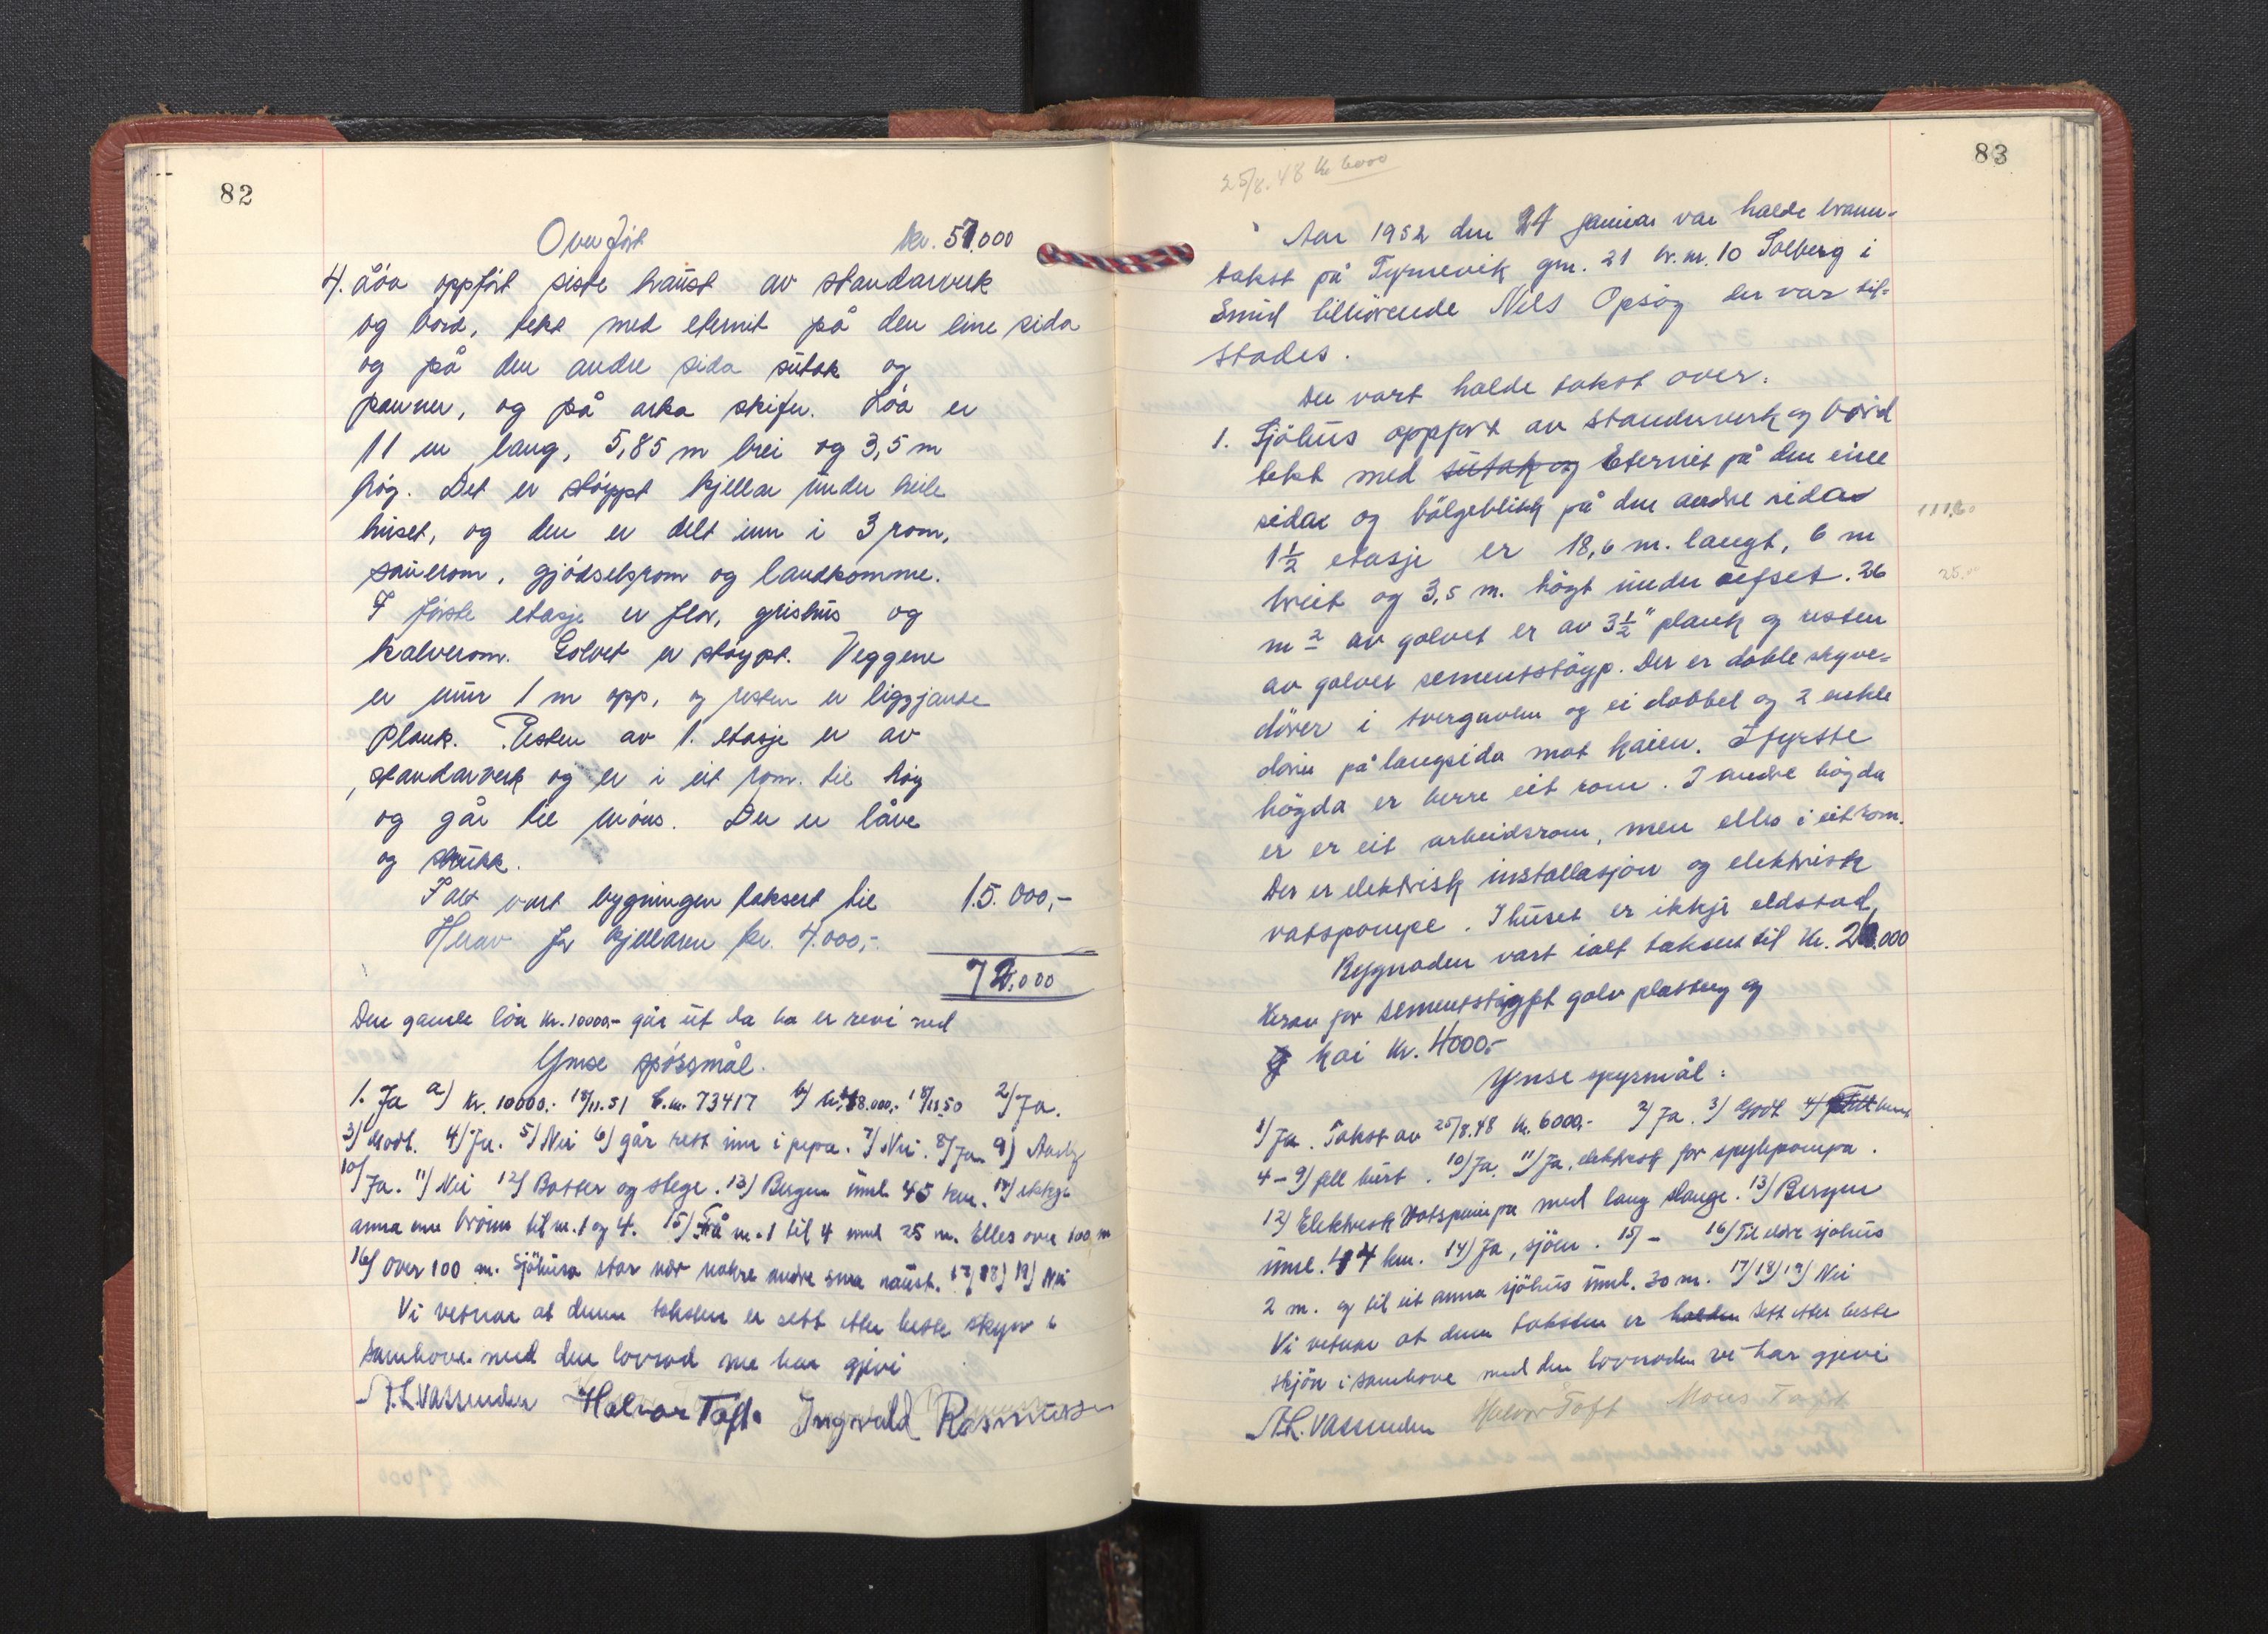 82
Overfört kr. 57.000
4. Löa oppfört siste haust av standarverk
og bord, tekt med eternit på den eine sida
og på den andre sida sutak og
panner, og på arka skifer. Löa er
11 m lang, 5,85 m brei og 3,5 m
høg. Det er støypt kjellar under heile
huset, og den er delt inn i 3 rom,
sauerom, gjødselsrom og landkomme.
I første etasje er flor, grishus og
kalverom. Golvet er støypt. Veggene
er mur 1 m opp, og resten er liggjande
plank. Resten av 1. etasje er av
standarverk og er i eit rom til høy
og går til møns. Der er låve
og
I alt vart bygningen taksert til 15.000,-
Herav for kjellaren kr. 4.000,-
72.000
Den gamle löa kr. 10000,- går ut da ho er revi ned
Ymse spørsmål.
1. Ja a) kr. 10000,- 18/11.51 73417 b) kr. 18/11.50 2) Ja.
3) Godt. 4) Ja. 5) Nei 6) går rett inn i pipa. 7) Nei. 8) Ja 9)
10) Ja. 11) Nei 12) Bøtter og stege. 13) Bergen uml. 45 km. 14) ikkje
anna enn brönn til nr. 1 og 4. 15) Frå nr. 1 til 4 uml 25 m. Elles over 100 m
16) Over 100 m. Sjöhusa star nær nokre andre små naust. 17) 18) 19) Nei
Vi vetnar at denne taksten er sett etter beste skyn i
samhove med den lovnad me har gjevi
A.L. Vassenden Halvor Toft. Ingvald Rasmussen
83
25/8.48 kr 6000
Aar 1952 den 24 januar var halde brann-
takst på Tyssevik gnr. 21 br.nr. 10 Solberg i
tilhörende Nils Opsøy der var til-
stades.
Der vart halde takst over:
1. Sjöhus oppfört av standerverk og bord
tekt med sutak og Eternit på den eine
sidae og bölgeblikk på den andre sida
111,60
1 1/2 etasje er 18,6 m. langt, 6 m
breit og 3,5 m. högt under ufset. 26
25.00
m2 av golvet er av 3 1/2" plank og resten
av golvet sementstöyp. Der er doble skyve-
dörer i tvergavlen og ei dobbel og 2 enkle
dörer på langsida mot kaien. I fyrste
högda er berre eit rom. I andre högda
er er eit arbeidsrom, men elles i eit rom.
Der er elektrisk installasjon og elektrisk
vatspompe. I huset er ikkje eldstad,
Bygnaden vart ialt taksert til kr. .000
Herav for sementstöypt golv plattıng og
og kai kr. 4000,-
Ymse spysmål:
1) Ja. Takst av 25/8.48 kr. 6000,- 2) Ja. 3) Godt 4)
4-9) fell burt. 10) Ja. 11) Ja, elektrisk for spylepompa.
12) Elektrisk Vatspumpa med lang slange. 13) Bergen
uml. 44 km. 14) Ja, sjöen. 15) - 16) Til eldre sjöhus
2 m. og til eit anna sjöhus uml. 30 m. 17) 18) 19) Nei
Vi vetnar at denne taksten er halden sett etter beste
skjön i samhove med den lovnaden vi har gjevi
A.L. Vassenden Halvor Toft Mons Toft